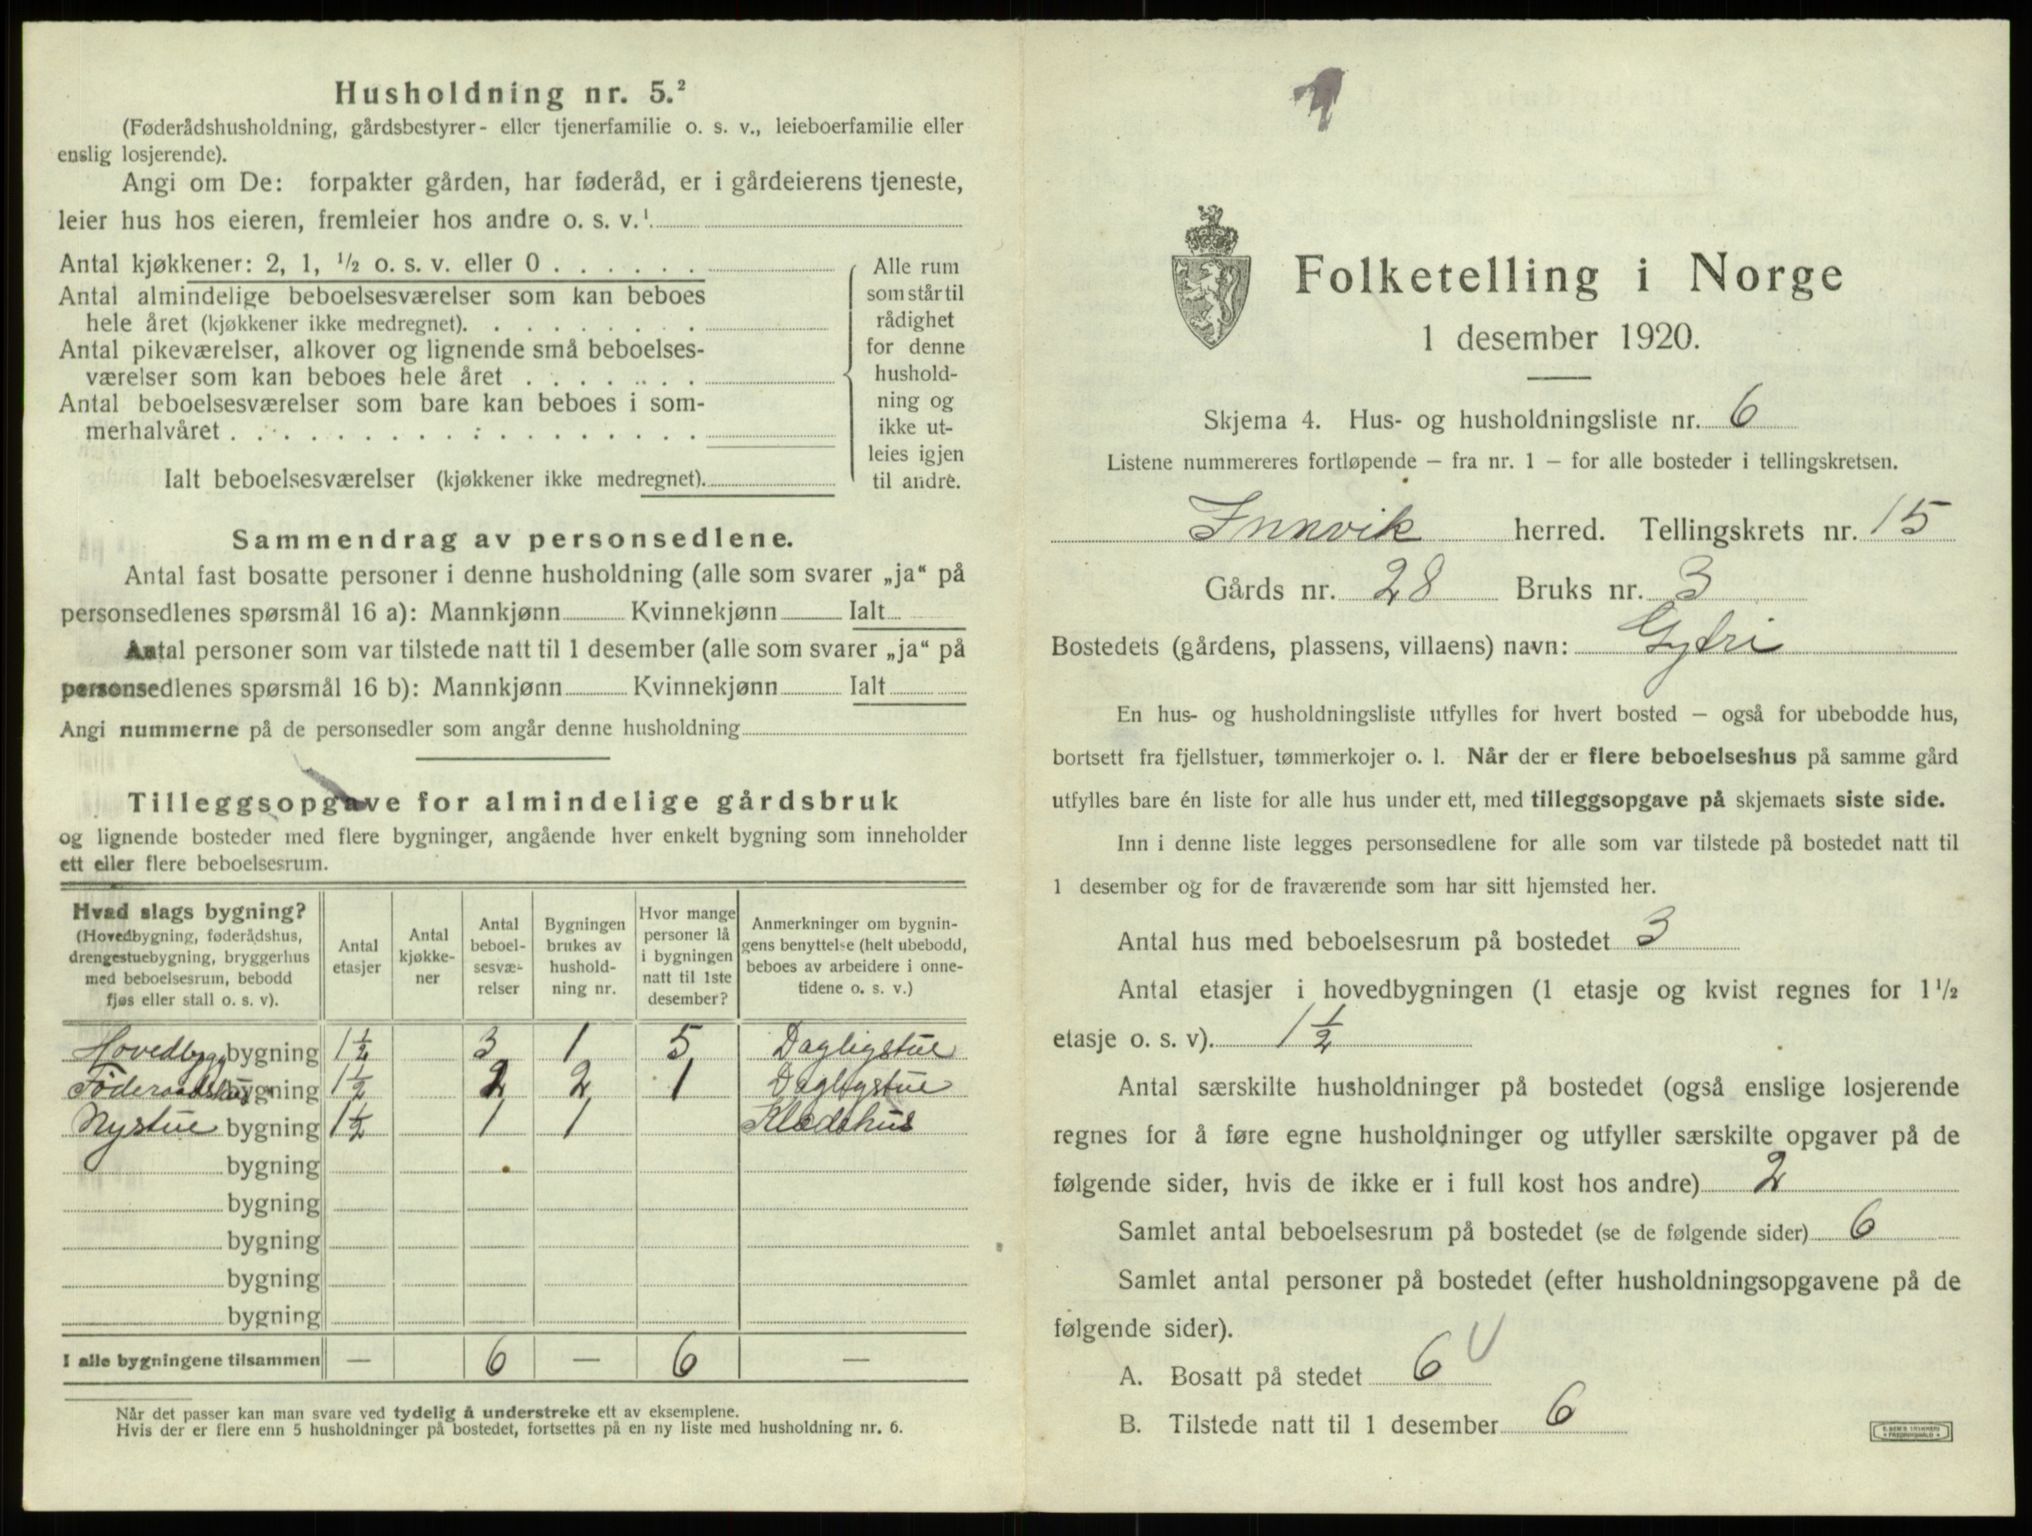 Husholdning nr. 5.²
(Føderådshusholdning, gårdsbestyrer- eller tjenerfamilie o. s. v., leieboerfamilie eller
enslig losjerende).
Angi om De: forpakter gården, har føderåd, er i gårdeierens tjeneste,
leier hus hos eieren, fremleier hos andre o. s. v.¹
Antal kjøkkener: 2, 1, ½ o. s. v. eller 0
Antal almindelige beboelsesværelser som kan beboes
hele året (kjøkkener ikke medregnet).
Antal pikeværelser, alkover og lignende små beboelses-
værelser som kan beboes hele året
Antal beboelsesværelser som bare kan beboes i som-
merhalvåret
Ialt beboelsesværelser (kjøkkener ikke medregnet).
Alle rum
som står til
rådighet
for denne
hushold-
ning og
ikke ut-
leies igjen
til andre.
Sammendrag av personsedlene.
Antal fast bosatte personer i denne husholdning (alle som svarer „ja“ på
personsedlenes spørsmål 16 a): Mannkjønn Kvinnekjønn Ialt
Antal personer som var tilstede natt til 1 desember (alle som svarer „ja“ på
personsedlenes spørsmål 16 b): Mannkjønn Kvinnekjønn Ialt
Angi nummerne på de personsedler som angår denne husholdning
Tilleggsopgave for almindelige gårdsbruk
og lignende bosteder med flere bygninger, angående hver enkelt bygning som inneholder
ett eller flere beboelsesrum.
Hvad slags bygning?
(Hovedbygning, føderådshus,
drengestuebygning, bryggerhus
med beboelsesrum, bebodd
fjøs eller stall o. s. v).
Antal
etasjer
Antal
kjøkke-
ner
Antal
beboel-
sesvæ-
relser
Bygningen
brukes av
hushold-
ning nr.
Hvor mange
personer lå
i bygningen
natt til 1ste
desember?
Anmerkninger om bygnin-
gens benyttelse (helt ubebodd,
beboes av arbeidere i onne-
tidene o. s. v.)
Hovedbygg bygning 1½ 3 1 5 Dagligstue
Føderaadshus bygning 1½ 2 2 1 Dagligstue
Nystue bygning 1½ 1 1 Klædehus
bygning
bygning
bygning
bygning
bygning
I alle bygningene tilsammen — 6 — 6 —
Når det passer kan man svare ved tydelig å understreke ett av eksemplene.
Hvis der er flere enn 5 husholdninger på bostedet, fortsettes på en ny liste med husholdning nr. 6.
Folketelling i Norge
1 desember 1920.
Skjema 4. Hus- og husholdningsliste nr. 6
Listene nummereres fortløpende – fra nr. 1 – for alle bosteder i tellingskretsen.
Innvik herred. Tellingskrets nr. 15
Gårds nr. 28 Bruks nr. 3
Bostedets (gårdens, plassens, villaens) navn: Gytri
En hus- og husholdningsliste utfylles for hvert bosted – også for ubebodde hus,
bortsett fra fjellstuer, tømmerkojer o. l. Når der er flere beboelseshus på samme gård
utfylles bare én liste for alle hus under ett, med tilleggsopgave på skjemaets siste side.
Inn i denne liste legges personsedlene for alle som var tilstede på bostedet natt til
1 desember og for de fraværende som har sitt hjemsted her.
Antal hus med beboelsesrum på bostedet 3
Antal etasjer i hovedbygningen (1 etasje og kvist regnes for 1½
etasje o. s. v). 1½
Antal særskilte husholdninger på bostedet (også enslige losjerende
regnes for å føre egne husholdninger og utfyller særskilte opgaver på de
følgende sider, hvis de ikke er i full kost hos andre) 2
Samlet antal beboelsesrum på bostedet (se de følgende sider) 6
Samlet antal personer på bostedet (efter husholdningsopgavene på de
følgende sider).
A. Bosatt på stedet 6
B. Tilstede natt til 1 desember 6